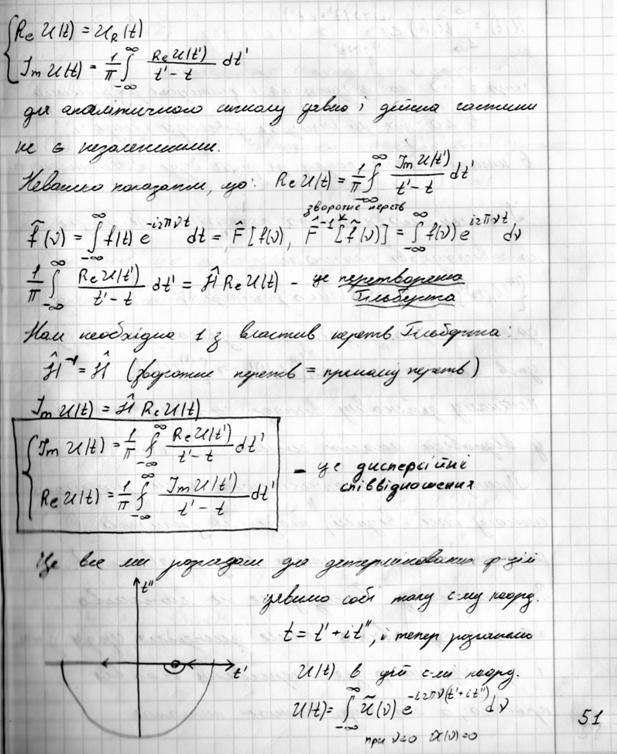 { Re U(t) = U_R(t)
Im U(t) = 1/π ∫_{-∞}^{∞} Re U(t')/(t'-t) dt'
для аналітичного сигналу уявна і дійсна частини
не є незалежними.
показати, що: Re U(t) = 1/π ∫_{-∞}^{∞} Im U(t')/(t'-t) dt'
зворотне перетв
f̃(ν) = ∫_{-∞}^{∞} f(t) e^{-i2πνt} dt = F̂[f(ν)], F̂^{-1}[f̃(ν)] = ∫_{-∞}^{∞} f(ν) e^{i2πνt} dν
1/π ∫_{-∞}^{∞} Re U(t')/(t'-t) dt' = Ĥ Re U(t) - це перетворення
Гільберта
Нам необхідна 1 з властив перетв Гільберта:
Ĥ^{-1} = Ĥ (зворотнє перетв = прямому перетв)
Im U(t) = Ĥ Re U(t)
{ Im U(t) = 1/π ∫_{-∞}^{∞} Re U(t')/(t'-t) dt'
Re U(t) = 1/π ∫_{-∞}^{∞} Im U(t')/(t'-t) dt'
- це дисперсійні
співвідношення
Це все ми розглядали для детермінованих ф-цій
t''
t'
уявимо собі таку с-му коорд.
t = t' + it'', і тепер розглянемо
U(t) в цій с-мі коорд.
U(t) = ∫_{-∞}^{∞} ũ(ν) e^{-i2πν(t'+it'')} dν
51